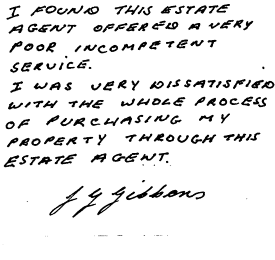 I FOUND THIS ESTATE
AGENT OFFERED A VERY
POOR INCOMPETENT
SERVICE.
I WAS VERY DISSATISFIED
WITH THE WHOLE PROCESS
OF PURCHASING MY
PROPERTY THROUGH THIS
ESTATE AGENT.
J G Gibbons